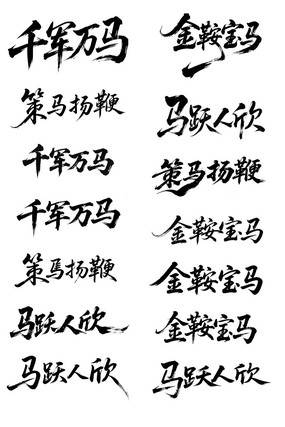 千军万马
金鞍宝马
策马扬鞭
马跃人欣
千军万马
策马扬鞭
千军万马
金鞍宝马
策馬扬鞭
金鞍宝马
马跃人欣
金鞍宝马
马跃人欣
马跃人欣